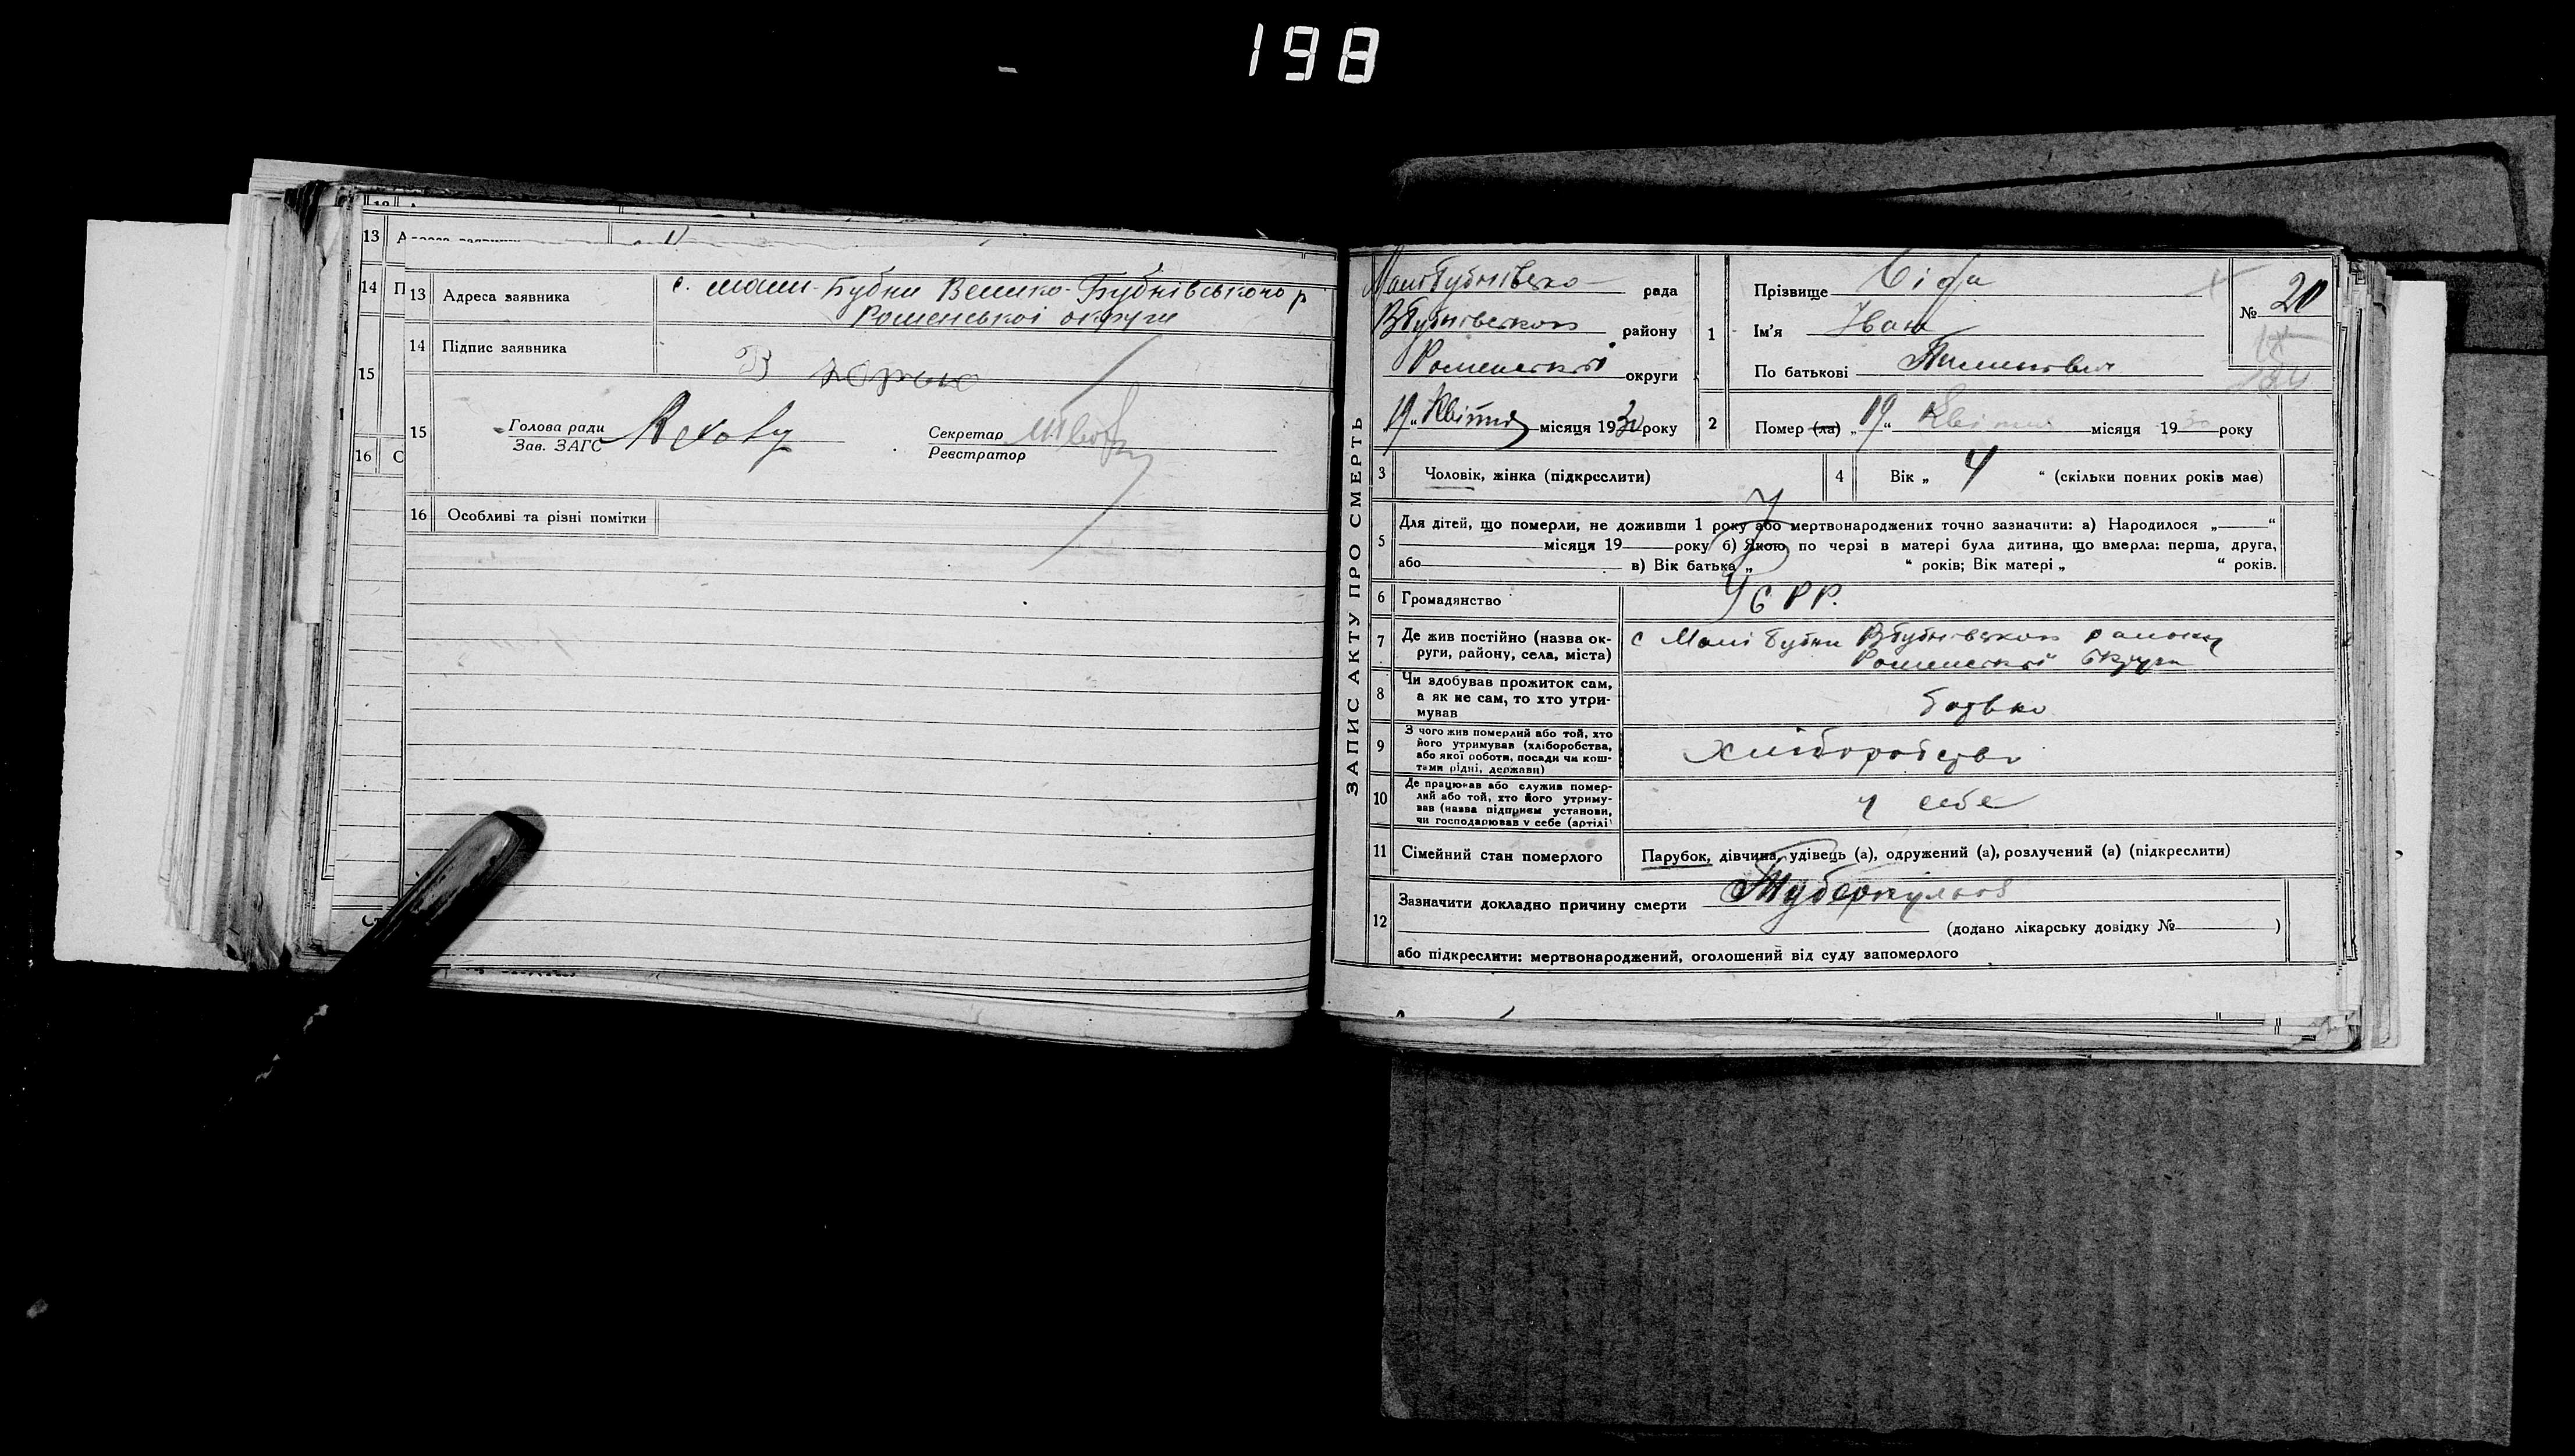 198
13
14 П
15
16 С
13 Адреса заявника с. мали-Бубни Велико-Бубнівського р
Роменської округи
14 Підпис заявника
15 Голова ради
Зав. ЗАГС
Секретар
Реєстратор
16 Особливі та різні помітки
ЗАПИС АКТУ ПРО СМЕРТЬ
МалоБубнівсько- рада
ВБубнівського району
Роменської округи
19 „ Квітня місяця 1930 року
1 Прізвище
Ім'я Іван
По батькові
№ 20
2 Помер (ла) „19“ Квітня місяця 1930 року
3 Чоловік, жінка (підкреслити)
4 Вік „ 4 “ (скільки повних років має)
5 Для дітей, що померли, не доживши 1 року або мертвонароджених точно зазначити: а) Народилося „ “
місяця 19 року б) Якою по черзі в матері була дитина, що вмерла: перша, друга,
або в) Вік батька „ “ років; Вік матері „ “ років.
6 Громадянство УСРР.
7 Де жив постійно (назва ок-
руги, району, села, міста)
с Малі Бубни ВБубнівського району
Роменської округи
8 Чи здобував прожиток сам,
а як не сам, то хто утри-
мував
батько
9 З чого жив померлий або той, хто
його утримував (хліборобства,
або якої роботи, посади чи кош-
тами рідні, держави)
Хліборобство
10 Де працював або служив помер-
лий або той, хто його утриму-
вав (назва підприєм установи,
чи господарював у себе (артілі)
у себе
11 Сімейний стан померлого Парубок, дівчина, удівець (а), одружений (а), розлучений (а) (підкреслити)
12 Зазначити докладно причину смерти Туберкульоз
(додано лікарську довідку № )
або підкреслити: мертвонароджений, оголошений від суду запомерлого